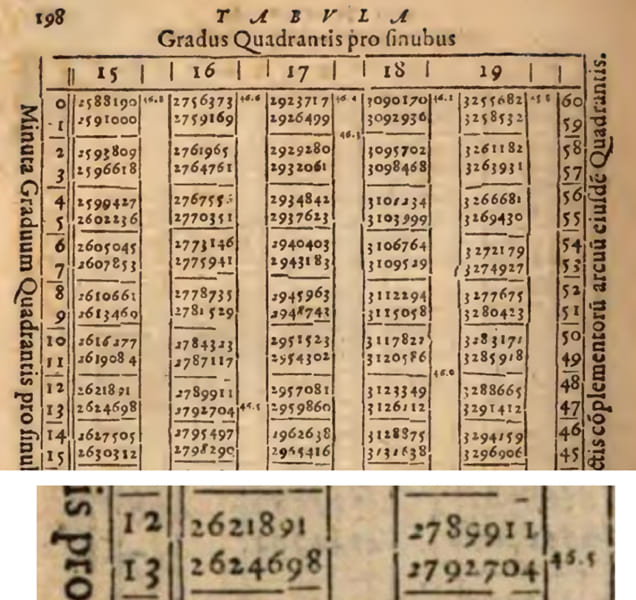 198
TABVLA
Gradus Quadrantis pro sinubus
15 16 17 18 19
0 2588190 46.8 2756373 46.6 2923717 46.4 3090170 46.1 3255682 60
1 2591000 2759169 2926499 3092936 3258532 59
46.3
2 2593809 2761965 2929280 3095702 3261182 58
3 2596618 2764761 2932061 3098468 3263931 57
4 2599427 2934842 3101234 3266681 56
5 2602236 2770351 2937623 3103999 3269430 55
6 2605045 2773146 2940403 3106764 3272179 54
7 2607853 2775941 2943183 3109529 3274927 53
8 2610661 2778735 2945963 3112294 3277675 52
9 2613469 2781529 2948743 3115058 3280423 51
10 2616277 2784323 2951523 3283171 50
11 2619084 2787117 2954302 3120586 3285918 49
46.0
12 2621891 2789911 2957081 3123349 3288665 48
13 2624698 2792704 46.5 2959860 3126112 3291412 47
14 2627505 2795497 2962638 3128875 3294159 46
15 2630312 2798290 2965416 3131638 3296906 45
Minuta Graduum Quadrantis pro sinu
ctis cóplementorū arcuū eiusdé Quadrantis.
is pro
12 2621891 2789911
13 2624698 2792704 46.5